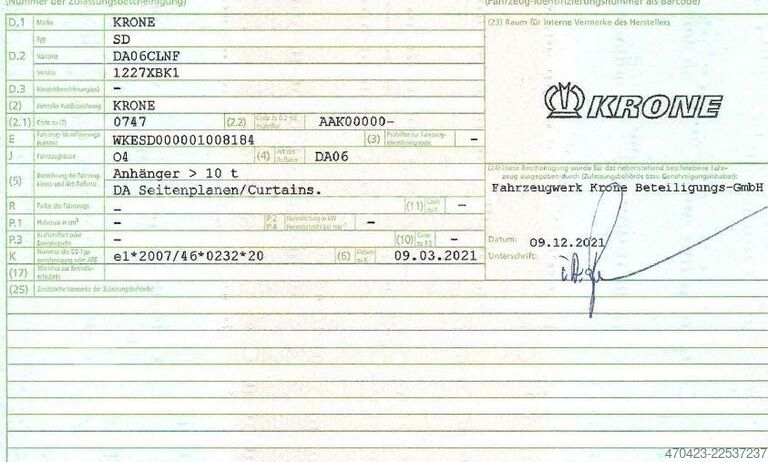 (Nummer der Zulassungsbescheinigung)
(Fahrzeug-Identifizierungsnummer als Barcode)
D.1 Marke KRONE
(23) Raum für interne Vermerke des Herstellers
Typ SD
D.2 Variante DA06CLNF
Version 1227XBK1
D.3 Handelsbezeichnung(en) –
KRONE
(2) Hersteller-Kurzbezeichnung KRONE
(2.1) Code zu (2) 0747 (2.2) Code zu D.2 mit Prüfziffer AAK00000-
E Fahrzeug-Identifizierungs-nummer WKESD000001008184 (3) Prüfziffer zur Fahrzeug-Identifizierungsnummer –
J Fahrzeugklasse O4 (4) Art des Aufbaus DA06
(24) Diese Bescheinigung wurde für das nebenstehend beschriebene Fahr-
zeug ausgegeben durch (Zulassungsbehörde bzw. Genehmigungsinhaber):
Fahrzeugwerk Krone Beteiligungs-GmbH
(5) Bezeichnung der Fahrzeug-klasse und des Aufbaus Anhänger > 10 t
DA Seitenplanen/Curtains.
R Farbe des Fahrzeugs – (11) Code zu R –
P.1 Hubraum in cm³ – P.2 P.4 Nennleistung in kW Nenndrehzahl bei min⁻¹ –
P.3 Kraftstoffart oder Energiequelle – (10) Code zu P.3 –
Datum: 09.12.2021
K Nummer der EG-Typ-genehmigung oder ABE e1*2007/46*0232*20 (6) Datum zu K 09.03.2021
Unterschrift:
(17) Merkmal zur Betriebs-erlaubnis
(25) Zusätzliche Vermerke der Zulassungsbehörde:
470423-22537237